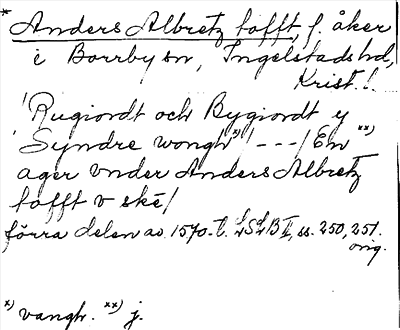 * Anders Albretz tofft, f. åker
i Borrby sn, Ingelstads hd,
Krist. l.
/Rugiordt och Bygiordt y
Syndre wongh*)/ - - - / En **)
ager vnder Anders Albretz
tofft v skè/
förra delen av 1570-t. LSLB II, ss. 250, 251.
orig.
x) vangh. xx) j.